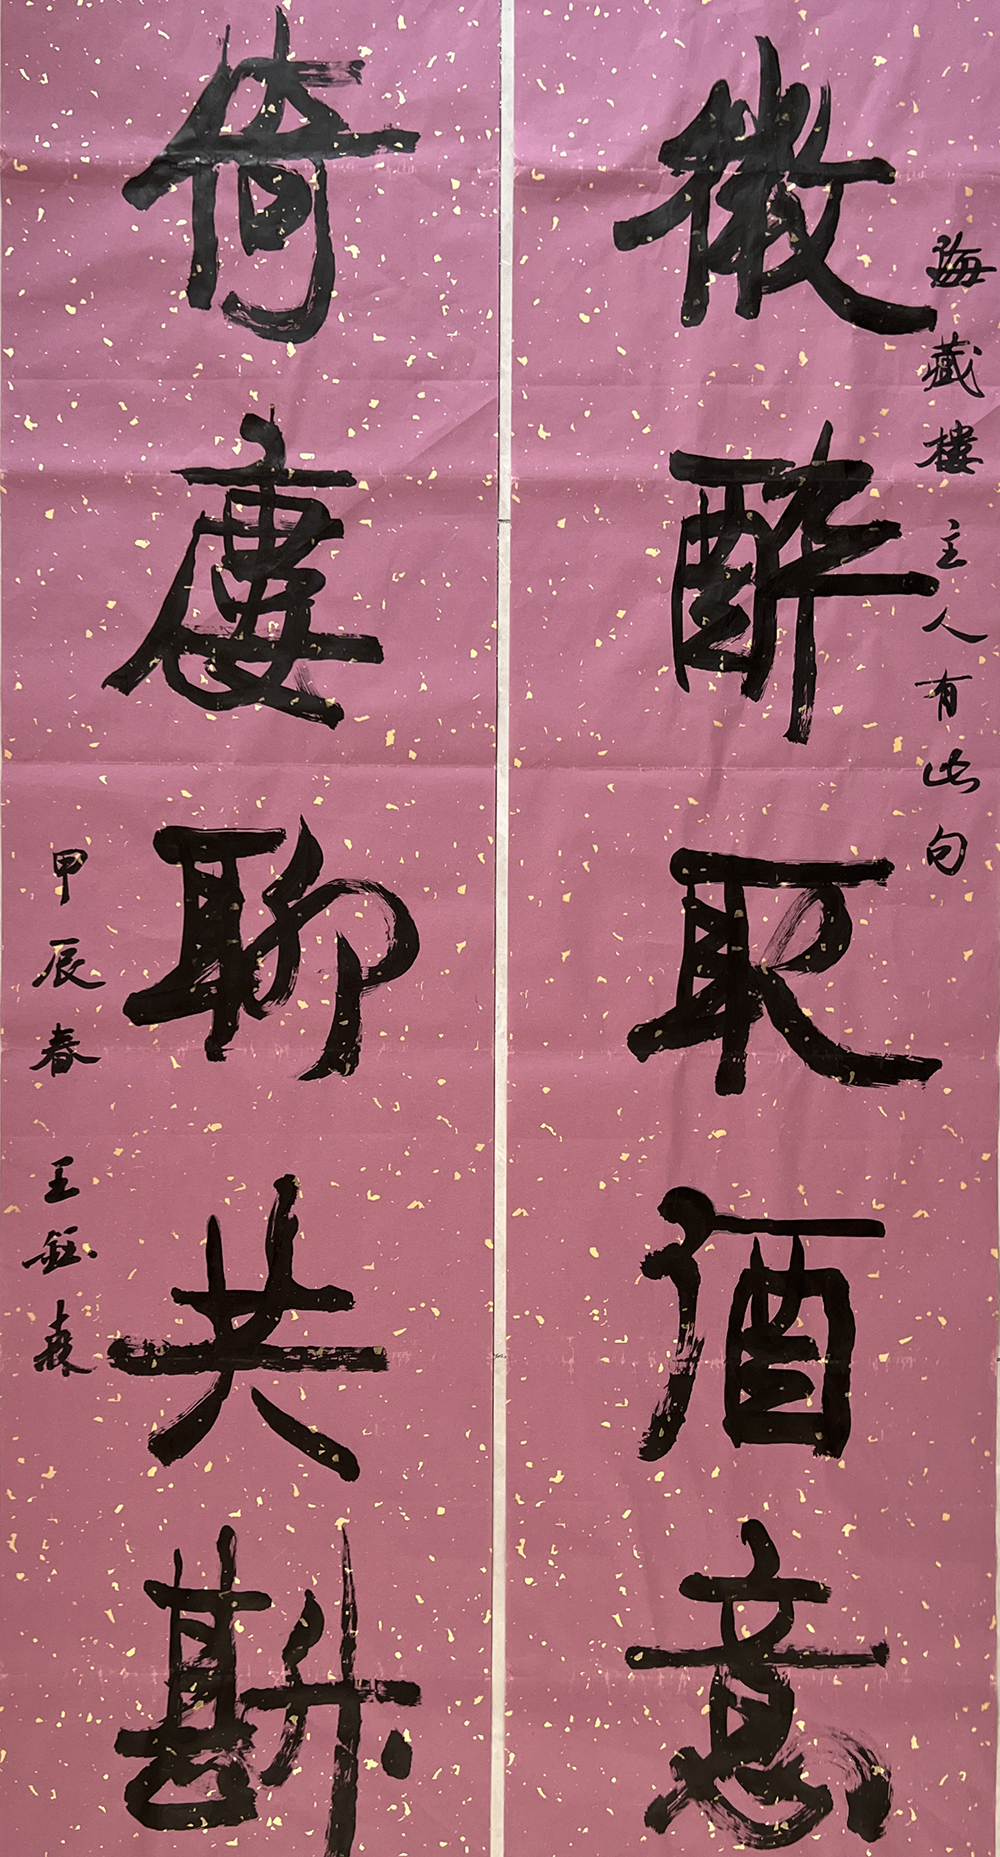 海藏樓主人有此句
微醉取酒意
倚廔聊共斟
甲辰春 王鈺